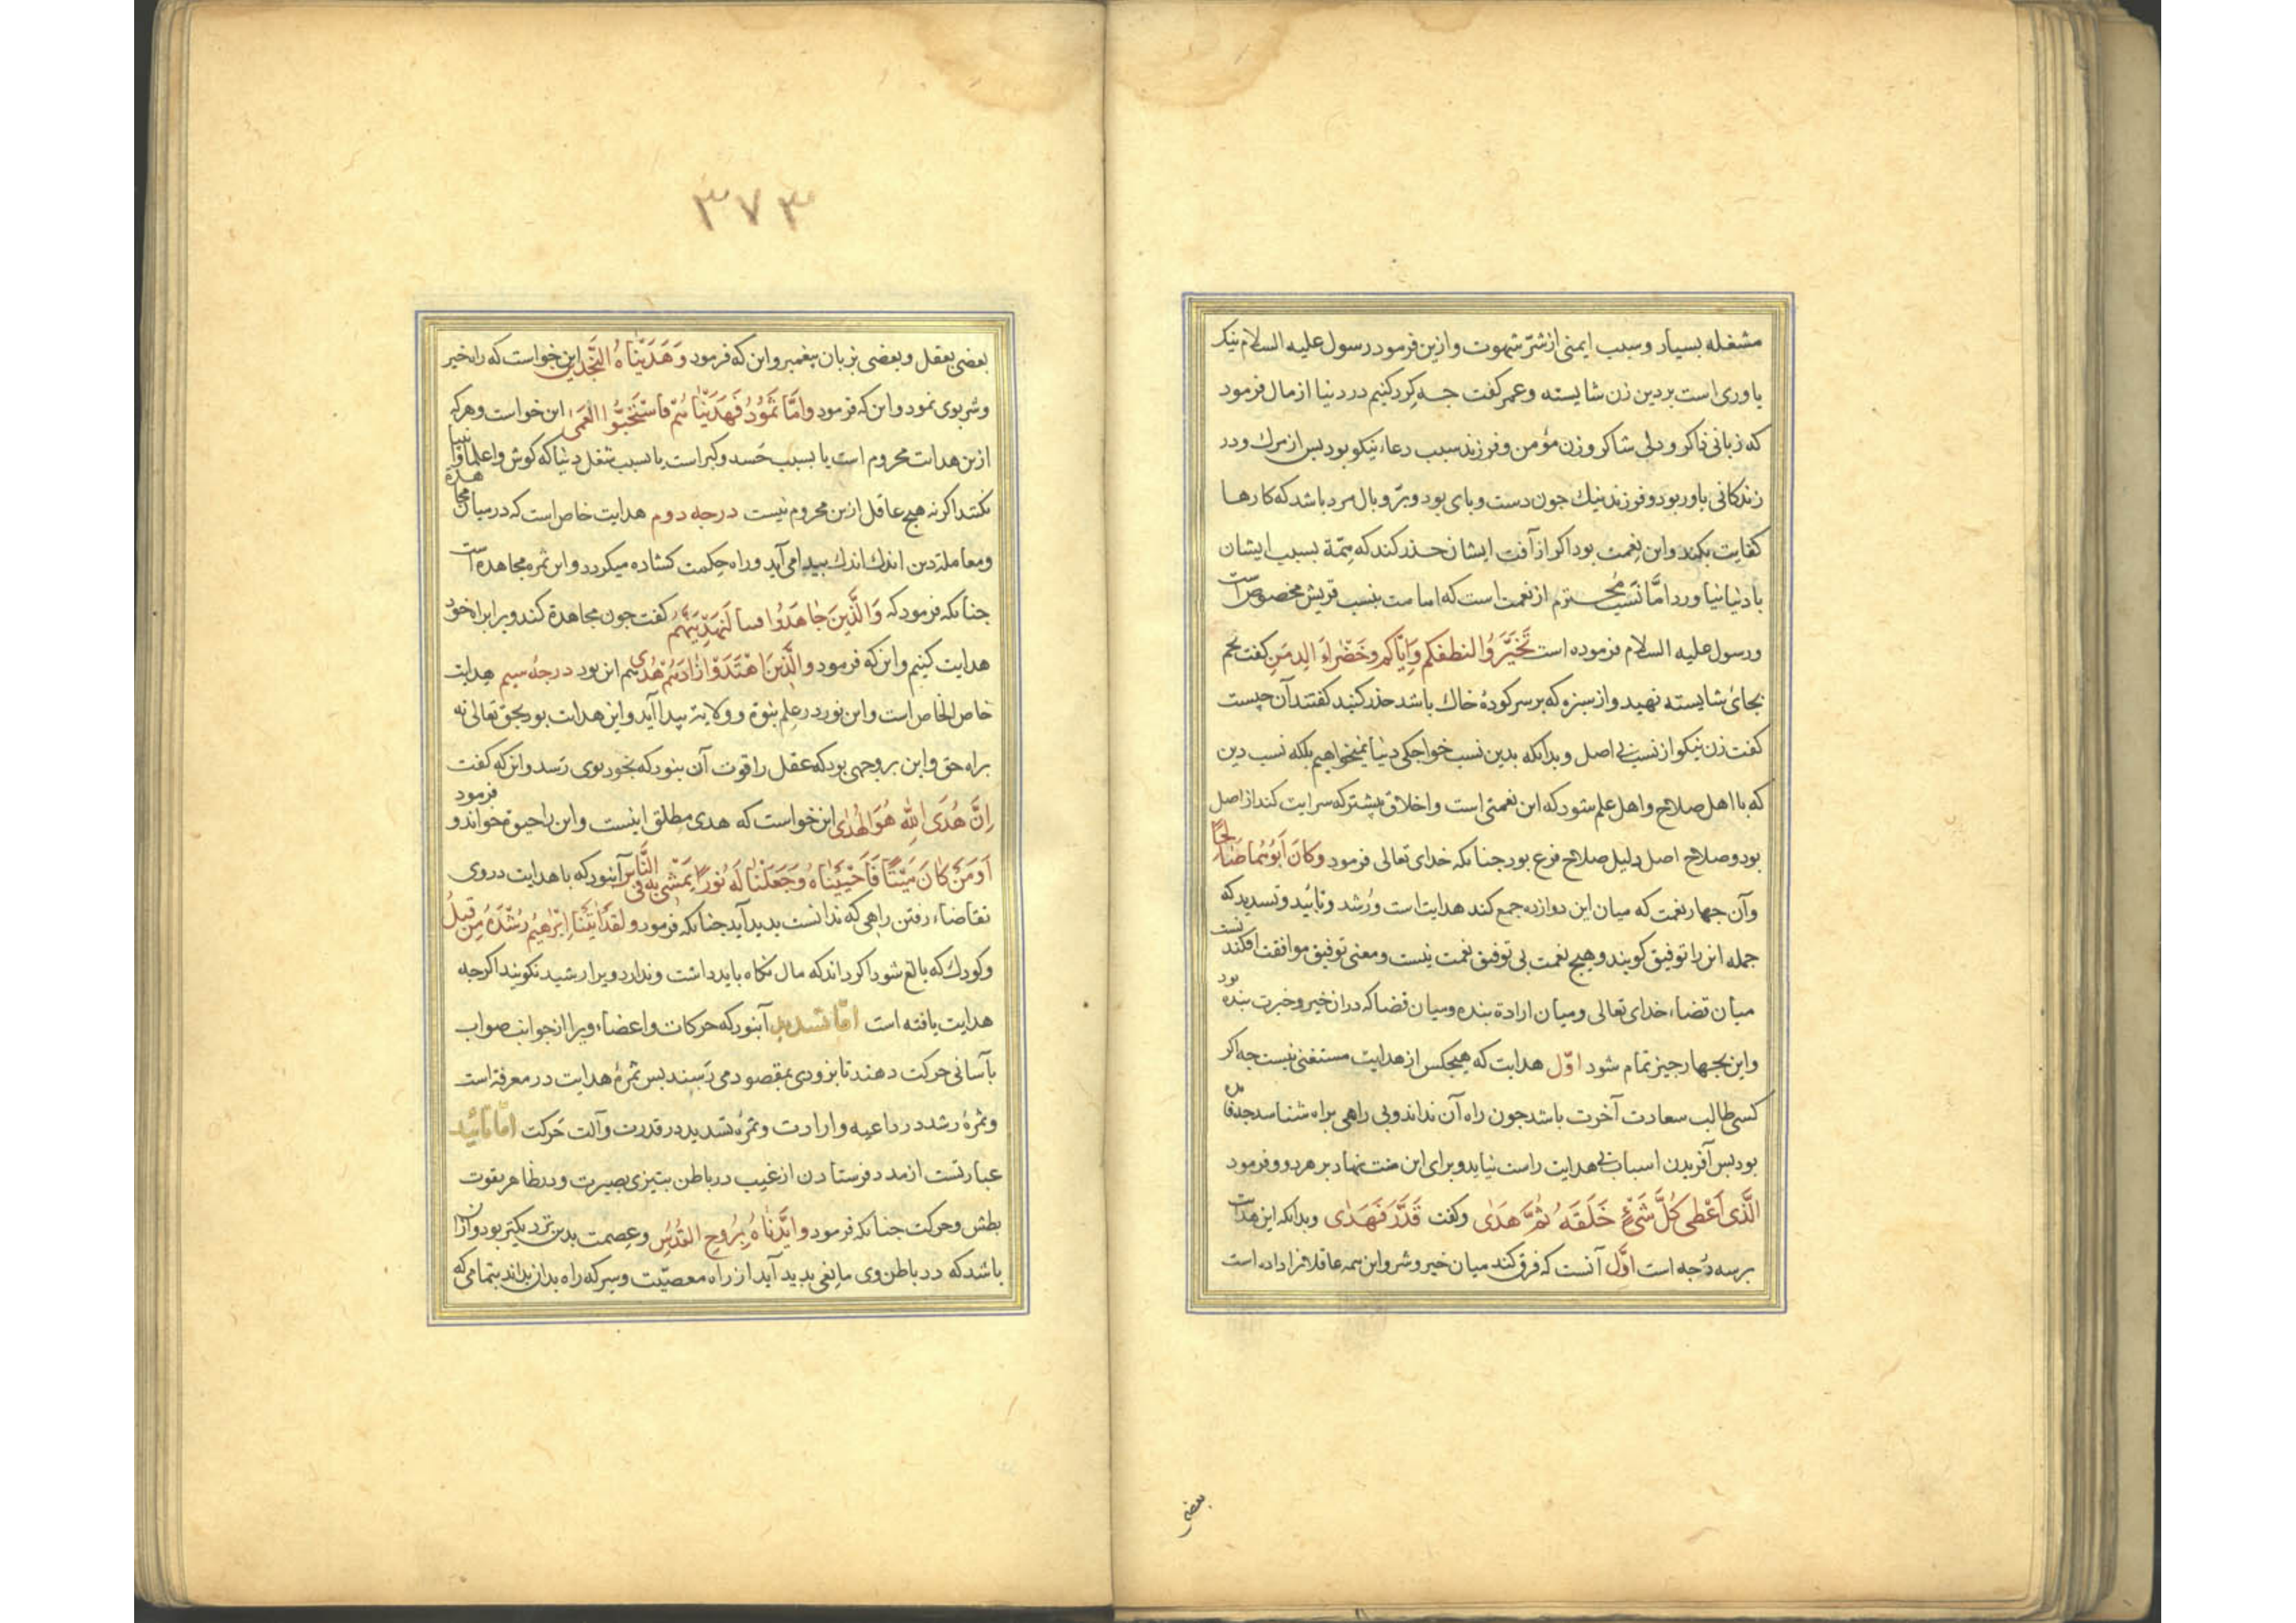 مشغله بسیار و سبب ایمنی از شرّ شهوت و ازین فرمود رسول علیه السلام نیک
یاوری است بر دین زن شایسته و عمر گفت جه کرد کنیم در دنیا از مال فرمود
که زبانی ذاکر و دلی شاکر و زن مؤمن و فرزند سبب دعاء نیکو بود بس از مرک و در
زندکانی یاور بود و فرزند نیك جون دست و بای بود و برّ و بال مرد باشد که کارها
کفایت بکند و این نعمت بود اکر از آفت ایشان حذر کند که همّة بسبب ایشان
با دنیا نیاورد امّا نسب محترم از نعمت است که امامت بنسب قریش مخصوص است
و رسول علیه السلام فرموده است تَخَیَّرُوا لنطفکم وَاِیّاکم وخَضْراءَ الدِمَنِ کفت تخم
بجائ شایسته نهید و از سبزه که بر سر کودۀ خاك باشد حذر کنید کفتند آن چیست
کفت زن نیکو از نسب بی اصل و بدانکه بدین نسب خواجکی دنیا نمیخواهیم بلکه نسب دین
که با اهل صلاح و اهل علم شود که این نعمتی است و اخلاق بیشتر که سرایت کند از اصل
بود و صلاح اصل دلیل صلاح فرع بود جنانکه خدای تعالی فرمود وکانَ اَبُوهُما صَالِحًا
و آن جهار نعمت که میان این دوازده جمع کند هدایت است و رُشد و تأیید و تسدید که
جمله این را توفیق کویند و هیچ نعمت بی توفیق نعمت نیست و معنی توفیق موافقت افکندنست
میان قضاء خدای تعالی و میان ارادة بنده و میان قضا که در ان خیر و خیرت بنده بود
و این بجهار جیز تمام شود اوّل هدایت که هیچکس از هدایت مستغنی نیست جه اکر
کسی طالب سعادت آخرت باشد جون راه آن نداند و بی راهی براه شناسد جه فایده
بود بس آفریدن اسباب بی هدایت راست نیاید و برای این منت نهاد بر هر دو و فرمود
الَّذی اَعْطی کُلَّ شَیْءٍ خَلَقَهُ ثُمَّ هَدَی و کفت قَدَّرَ فَهَدَی و بدانکه این هدایت
بر سه درجه است اوّل آنست که فرق کند میان خیر و شر و این همه عاقلانرا داده است
بعضی
۳۷۳
بعضی بعقل و بعضی بزبان پیغمبر و این که فرمود وَهَدَیْنَاهُ النَّجْدَیْنِ این خواست که راه خیر
و شر بوی نمود و این که فرمود وامّا ثَمُودُ فَهَدَیْنَاهُم فاسْتَحَبُّوا العَمَیٰ این خواست و هر که
ازین هدایت محروم است یا بسبب حَسد و کبر است یا بسبب شغل دنیا که کوش وا علما و انبیا
نکنند اکر نه هیچ عاقل ازین محروم نیست درجه دوم هدایت خاص است که در میان مجاهدة
و معاملهٔ دین اندك اندك بپیدا می آید و راه حکمت کشاده میکردد و این ثمره مجاهدة است
جنانکه فرمود که وَالَّذینَ جاهَدُوا فینا لَنَهْدِیَنَّهُمْ کفت جون مجاهدة کند ویرا براه خود
هدایت کنیم و این که فرمود والَّذینَ اهْتَدَوْا زَادَهُمْ هُدًی هم این بود درجهٔ سیم هدایت
خاص الخاص است و این نور در علم نبوّة و ولایت بیدا آید و این هدایت بود بحق تعالی نه
براه حق و این بر وجهی بود که عقل را قوت آن بنود که بخود بوی رَسد و این که کفت
اِنَّ هُدَی اللهِ هُوَ الهُدَی این خواست که هدی مطلق اینست و این را حیوة خواند و فرمود
اَوَمَنْ کانَ مَیْتًا فَاَحْیَیْنَاهُ وَجَعَلْنَا لَهُ نُورًا یَمْشِی بِهِ فِی النَّاسِ آن بود که با هدایت در وی
تقاضاء رفتن راهی که ندانست بدید آید جنانکه فرمود ولقد اٰتَیْنا اِبْراهیمَ رُشْدَهُ مِن قَبلُ
و کودك که بالغ شود اکر داند که مال نکاه باید داشت و ندارد ویرا رشید نکویند اکرجه
هدایت یافته است امّا تسدید آن بود که حرکات و اعضاء ویرا از جوانب صواب
بآسانی حرکت دهند تا بزودی بمقصود می رَسند بس ثمرۀ هدایت در معرفة است
و ثمرۀ رشد در داعیه و ارادت و ثمرۀ تسدید در قدرت و آلت حَرکت امّا تأیید
عبارتست از مدد فرستادن از غیب در باطن بتیزی بصیرت و در ظاهر بقوت
بطش و حرکت جنانکه فرمود وایَّدْنَاهُ بِرُوحِ القُدُسِ و عِصمت بدین نزدیکتر بود و آن ان
باشد که در باطن وی مانعی بدید آید از راه معصیّت و سر که راه بداز بداند بتمامی که